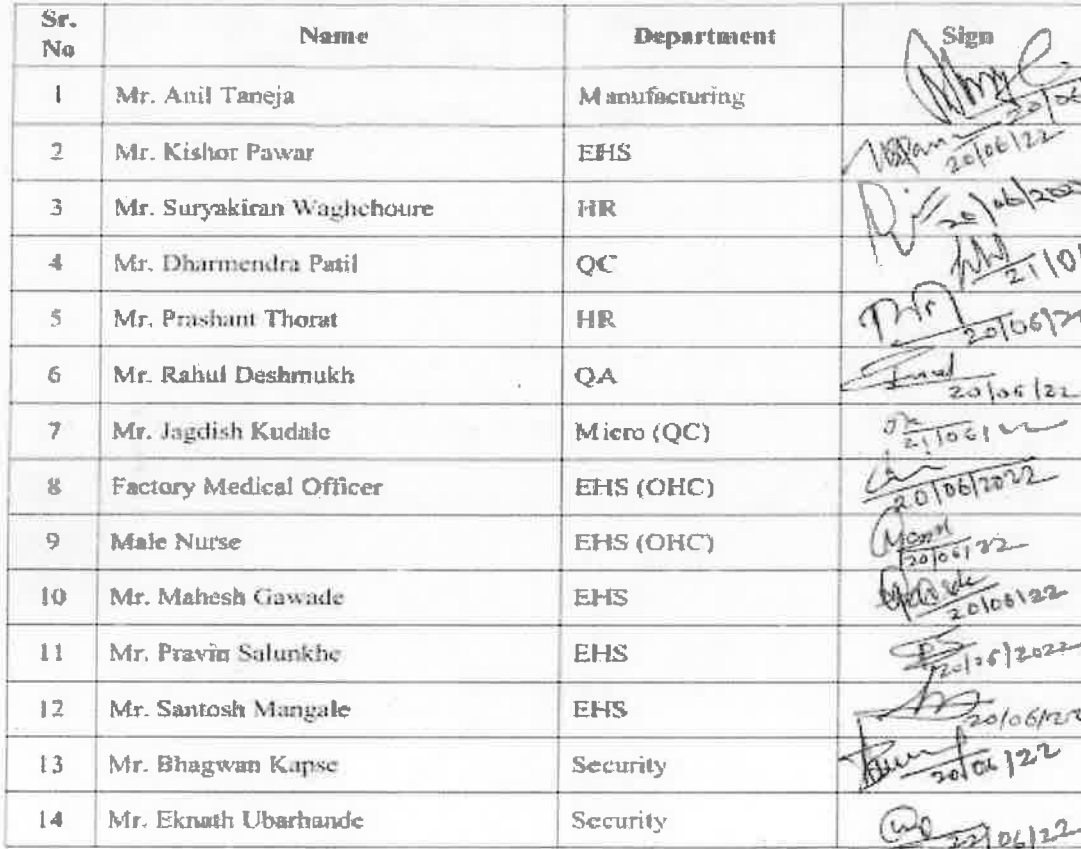 Sr. No Name Department Sign
1 Mr. Anil Taneja Manufacturing 20/06
2 Mr. Kishor Pawar EHS 20/06/22
3 Mr. Suryakiran Waghchoure HR 20/06/202
4 Mr. Dharmendra Patil QC 21/0
5 Mr. Prashant Thorat HR 20/06/2
6 Mr. Rahul Deshmukh QA 20/06/22
7 Mr. Jagdish Kudale Micro (QC) 21/06/22
8 Factory Medical Officer EHS (OHC) 20/06/2022
9 Male Nurse EHS (OHC) 20/06/22
10 Mr. Mahesh Gawade EHS 20/06/22
11 Mr. Pravin Salunkhe EHS 20/06/2022
12 Mr. Santosh Mangale EHS 20/06/22
13 Mr. Bhagwan Kapse Security 20/06/22
14 Mr. Eknath Ubarhande Security 22/06/22